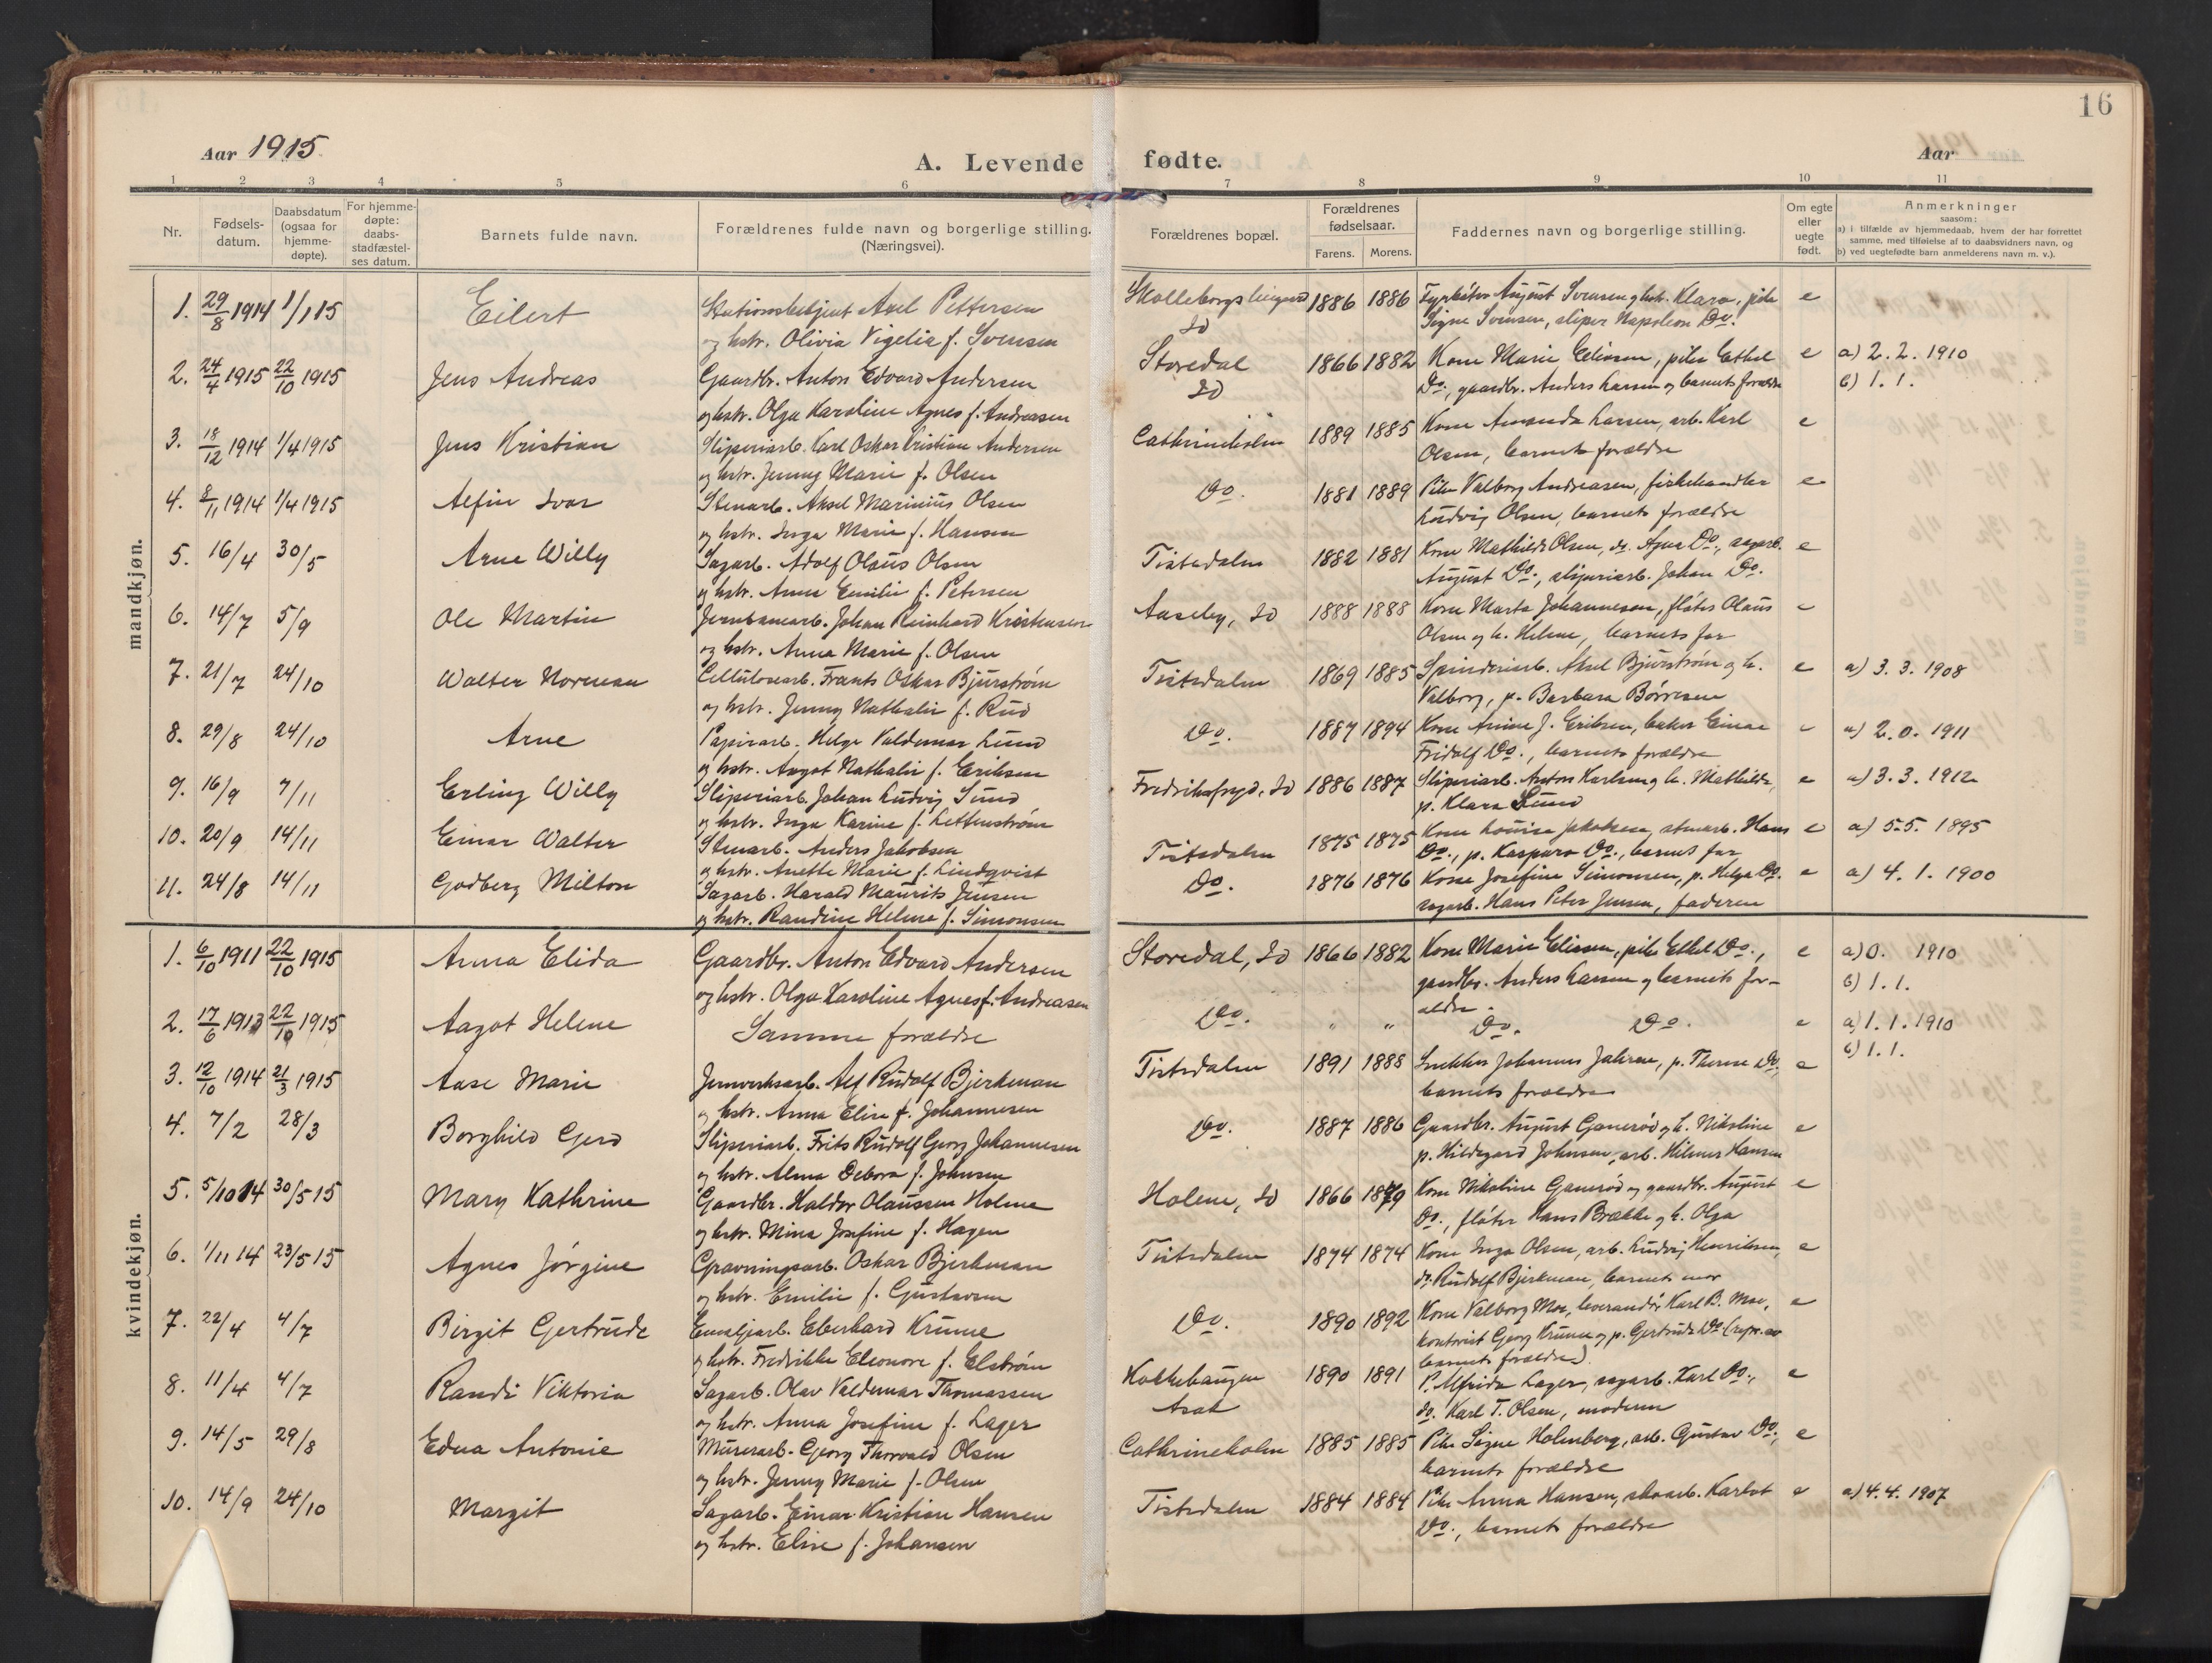 16
Aar 1915
A. Levende fødte.
Aar
1 2 3 4 5 6 7 8 9 10 11
Nr.
Fødsels-
datum.
Daabsdatum
(ogsaa for
hjemme-
døpte).
For hjemme-
døpte:
daabs-
stadfæstel-
ses datum.
Barnets fulde navn.
Forældrenes fulde navn og borgerlige stilling.
(Næringsvei).
Forældrenes bopæl.
Forældrenes
fødselsaar.
Farens. Morens.
Faddernes navn og borgerlige stilling.
Om egte
eller
uegte
født.
Anmerkninger
saasom:
a) i tilfælde av hjemmedaab, hvem der har forrettet
samme, med tilføielse af to daabsvidners navn, og
b) ved uegtefødte barn anmelderens navn m. v.).
mandkjøn.
1. 29/8 1914 1/1 15 Eilert Stationsbetjent Axel Pettersen 1886 1886 Fyrbøter August Svensen og hstr. Klara, pike e
og hstr. Olivia Vigelia f. Svensen Id Signe Svensen, sliper Napoleon Do.
2. 24/4 1915 22/10 1915 Jens Andreas Gaardbr. Anton Edvard Andersen Storedal 1866 1882 Kone Marie Eliesen, pike Ethel e a) 2. 2. 1910
og hstr. Olga Karoline Agnes f. Andreasen Id Do., gaardbr. Anders Larsen og barnets forældre b) 1. 1.
3. 18/12 1914 1/4 1915 Jens Kristian Sliperiarb. Karl Oskar Kristian Andersen Cathrineholm 1889 1885 Kone Amanda Larsen, arb. Karl e
og hstr. Jenny Marie f. Olsen Olsen, barnets forældre
4. 8/11 1914 1/4 1915 Alfin Ivar Stenarb. Aksel Marinius Olsen Do. 1881 1889 Pike Valborg Andreasen, fiskehandler e
og hstr. Inga Marie f. Hansen Ludvig Olsen, barnets forældre
5. 16/4 30/5 Arne Willy Sagarb. Adolf Olaus Olsen Tistedalen 1882 1881 Kone Mathilde Olsen, do. Agnes Do., sagarb. e
og hstr. Anna Emilie f. Petersen August Do., sliperiarb. Johan Do.
6. 14/7 5/9 Ole Martin Jernbanearb. Johan Reinhard Kristensen Aaseby, Id 1888 1888 Kone Marta Johannesen, fløter Olaus e
og hstr. Anna Marie f. Olsen Olsen og h. Helene, barnets far
7. 21/7 24/10 Walter Norman Cellulosearb. Frants Oskar Bjurstrøm Tistedalen 1869 1885 Spinderiarb. Aksel Bjurstrøm og h. e a) 3. 3. 1908
og hstr. Jenny Nathalie f. Rud Valborg, p. Barbara Børresen
8. 29/8 24/10 Arne Papirarb. Helge Valdemar Lund Do. 1887 1894 Kone Anine J. Eriksen, baker Einar e a) 2. 0. 1911
og hstr. Aagot Nathalie f. Eriksen Fridolf Do., barnets forældre
9. 16/9 7/11 Erling Willy Sliperiarb. Johan Ludvig Lund Fredriksfryd, Id 1886 1887 Sliperiarb. Anton Karlsen og h. Mathilde, e a) 3. 3. 1912
og hstr. Inga Karine f. Lettenstrøm p. Klara Lund
10. 20/9 14/11 Einar Walter Stenarb. Anders Jakobsen Tistedalen 1875 1875 Kone Louise Jakobsen, stenarb. Hans e a) 5. 5. 1895
og hstr. Anette Marie f. Lindqvist Do., p. Kaspara Do., barnets far
11. 24/8 14/11 Godberg Milton Sagarb. Harald Maurits Jensen Do. 1876 1876 Kone Josefine Simonsen, p. Helga Do. e a) 4. 1. 1900
og hstr. Randine Helene f. Simonsen sagarb. Hans Peter Jensen, faderen
kvindekjøn.
1. 6/10 1911 22/10 1915 Anna Elida Gaardbr. Anton Edvard Andersen Storedal, Id 1866 1882 Kone Marie Eliesen, pike Ethel Do., e a) 0. 1910
og hstr. Olga Karoline Agnes f. Andreasen gaardbr. Anders Larsen og barnets for- b) 1. 1.
ældre.
2. 17/6 1913 22/10 1915 Aagot Helene Samme forældre Do. " " Do. Do. e a) 1. 1. 1910
b) 1. 1.
3. 12/10 1914 21/3 1915 Aase Marie Jernverksarb. Alf Rudolf Bjerkman Tistedalen 1891 1888 Snekker Johannes Jahren, p. Therese Do., e
og hstr. Anna Elise f. Johannesen barnets forældre
4. 7/2 28/3 Borghild Gerd Sliperiarb. Frits Rudolf Georg Johannesen Do. 1887 1886 Gaardbr. August Ganerød og h. Nikoline e
og hstr. Alma Debora f. Johnsen p. Hildegard Johnsen, arb. Hilmer Hansen
5. 5/10 14 30/5 15 Mary Kathrine Gaardbr. Haldor Olaussen Holene Holene, Id 1866 1879 Kone Nikoline Ganerød og gaardbr. August e
og hstr. Mina Josefine f. Hagen Do., fløter Hans Brække og h. Olga
6. 1/11 14 23/5 15 Agnes Jørgine Gravningsarb. Oskar Bjerkman Tistedalen 1874 1874 Kone Inga Olsen, arb. Ludvig Henriksen, e
og hstr. Emilie f. Gustavsen do. Rudolf Bjerkman, barnets mor
7. 22/4 4/7 Birgit Gertrude Emaljearb. Eberhard Krune Do. 1890 1892 Kone Valborg Moe, leverandør Karl B. Moe, e
og hstr. Fredrikke Eleonore f. Elstrøm kontorist Georg Krune og p. Gertrude Do (repr. av
barnets forældre).
8. 11/4 4/7 Randi Viktoria Sagarb. Olav Valdemar Thomassen Kokkehaugen 1890 1891 P. Alfrida Lager, sagarb. Karl Do., e
og hstr. Anna Josefine f. Lager Asak do. Karl T. Olsen, moderen
9. 14/5 29/8 Edna Antonie Murerarb. Georg Thorvald Olsen Cathrineholm 1885 1885 Pike Signe Holmberg, arb. Gustav Do., e
og hstr. Jenny Marie f. Olsen barnets forældre
10. 14/9 24/10 Margit Sagarb. Einar Kristian Hansen Tistedalen 1884 1884 Pike Anna Hansen, skoarb. Karlot e a) 4. 4. 1907
og hstr. Elise f. Johansen Do., barnets forældre